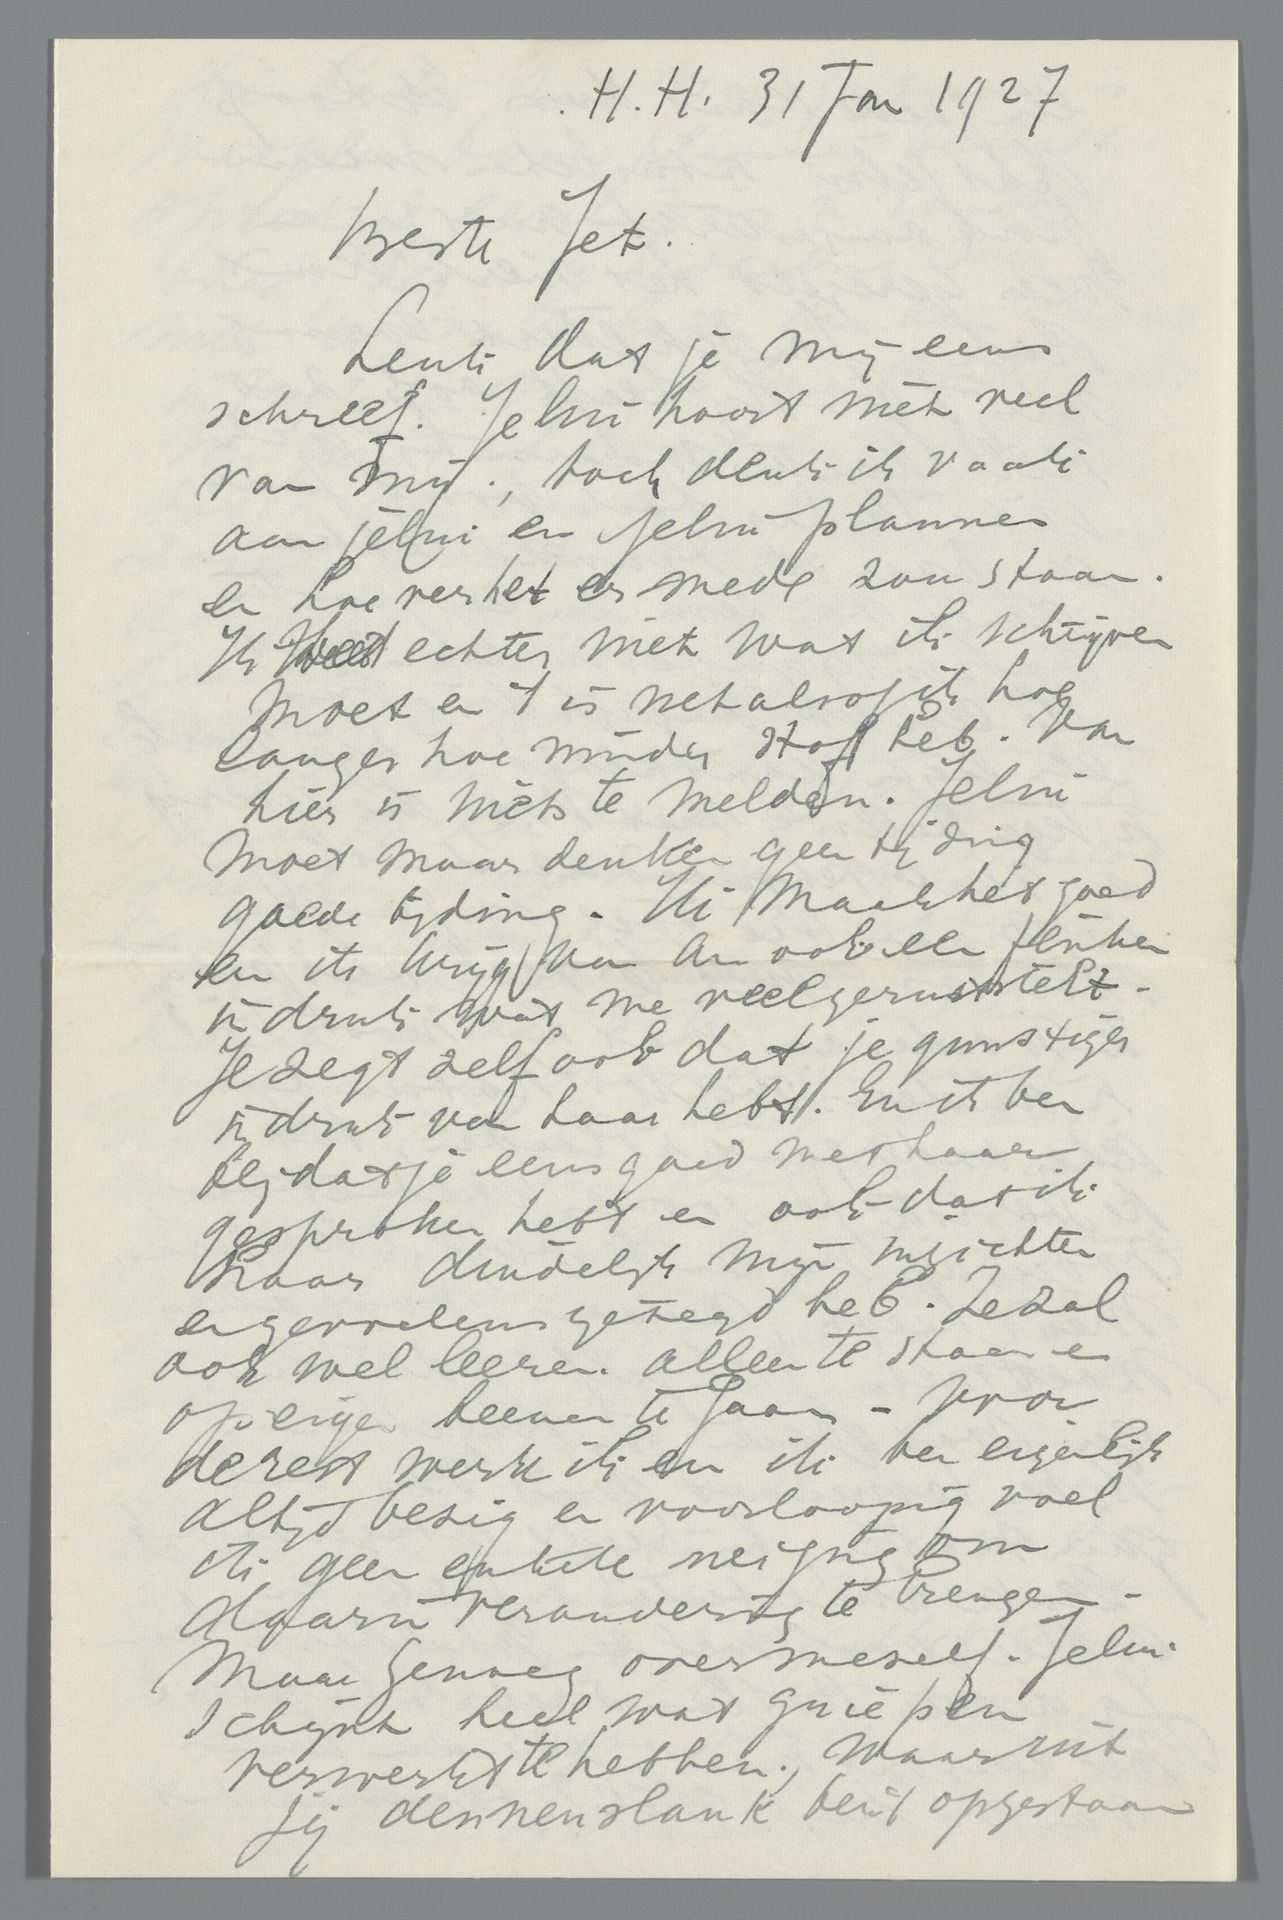 H.H. 31 Jan 1927
Beste Jet.
Leuk dat je mij eens
schreef. Jelui hoort niet veel
van mij., toch denk ik vaak
aan jelui en jelui plannen
en hoe ver het er mede zou staan.
Ik weet echter niet wat ik schrijven
moet en 't is net alsof ik hoe
langer hoe minder stof heb. Van
hier is niets te melden. Jelui
moet maar denken geen tijding
goede tijding. Ik maak het goed
en ik krijg van An ook een flinken
indruk wat me veel geruststelt.
Je zegt zelf ook dat je gunstiger
indruk van haar hebt. En ik ben
blij dat je eens goed met haar
gesproken hebt en ook dat ik
haar duidelijk mijn inzichten
en gevoelens gezegd heb. Ze zal
ook wel leeren alleen te staan en
op eigen beenen te gaan - Voor
de rest werk ik en ik ben eigenlijk
altijd bezig en voorloopig voel
ik geen enkele neiging om
daarin verandering te brengen -
Maar genoeg over mezelf. Jelui
schijnt heel wat griepen
verwerkt te hebben., waaruit
jij dennenslank bent opgestaan